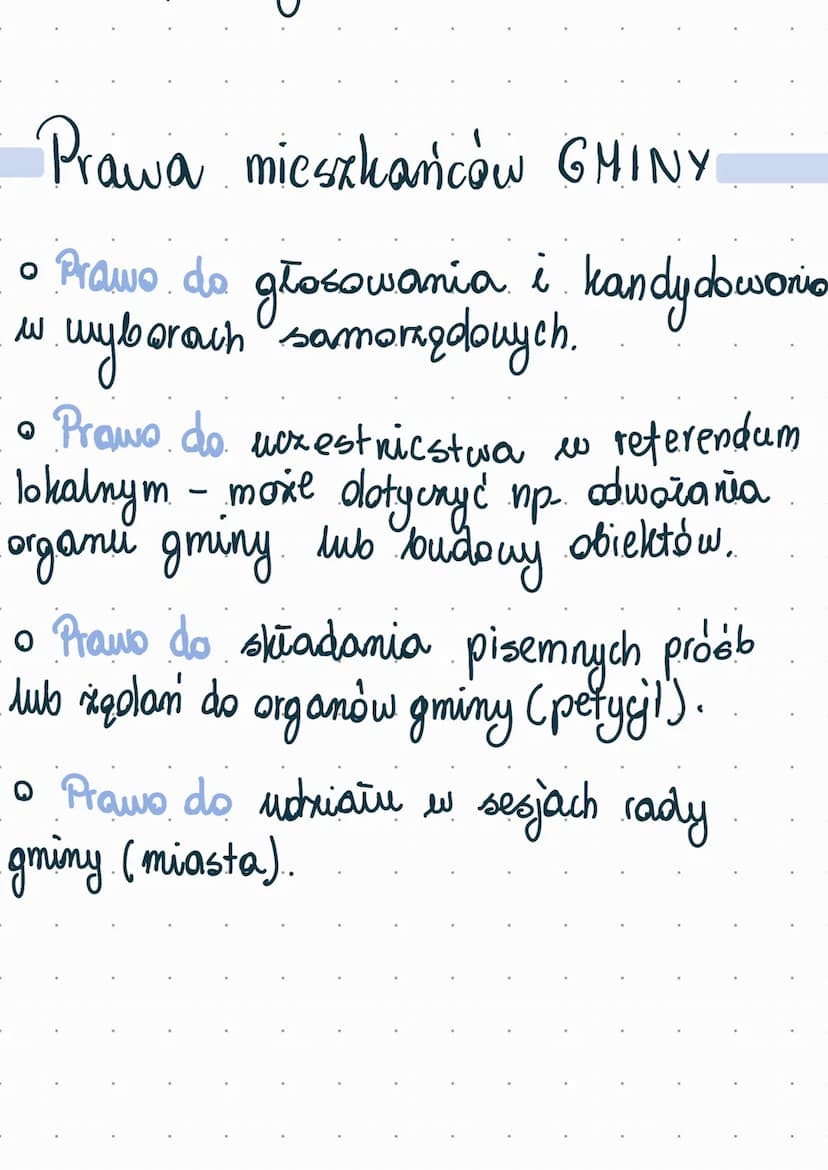 Prawa mieszkańców GMINY
o Prawo do głosowania i kandydowania
w wyborach samorządowych.
o Prawo do uczestnictwa w referendum
lokalnym - może dotyczyć np. odwołania
organu gminy lub budowy obiektów.
o Prawo do składania pisemnych próśb
lub żądań do organów gminy (petycji).
o Prawo do udziału w sesjach rady
gminy (miasta).